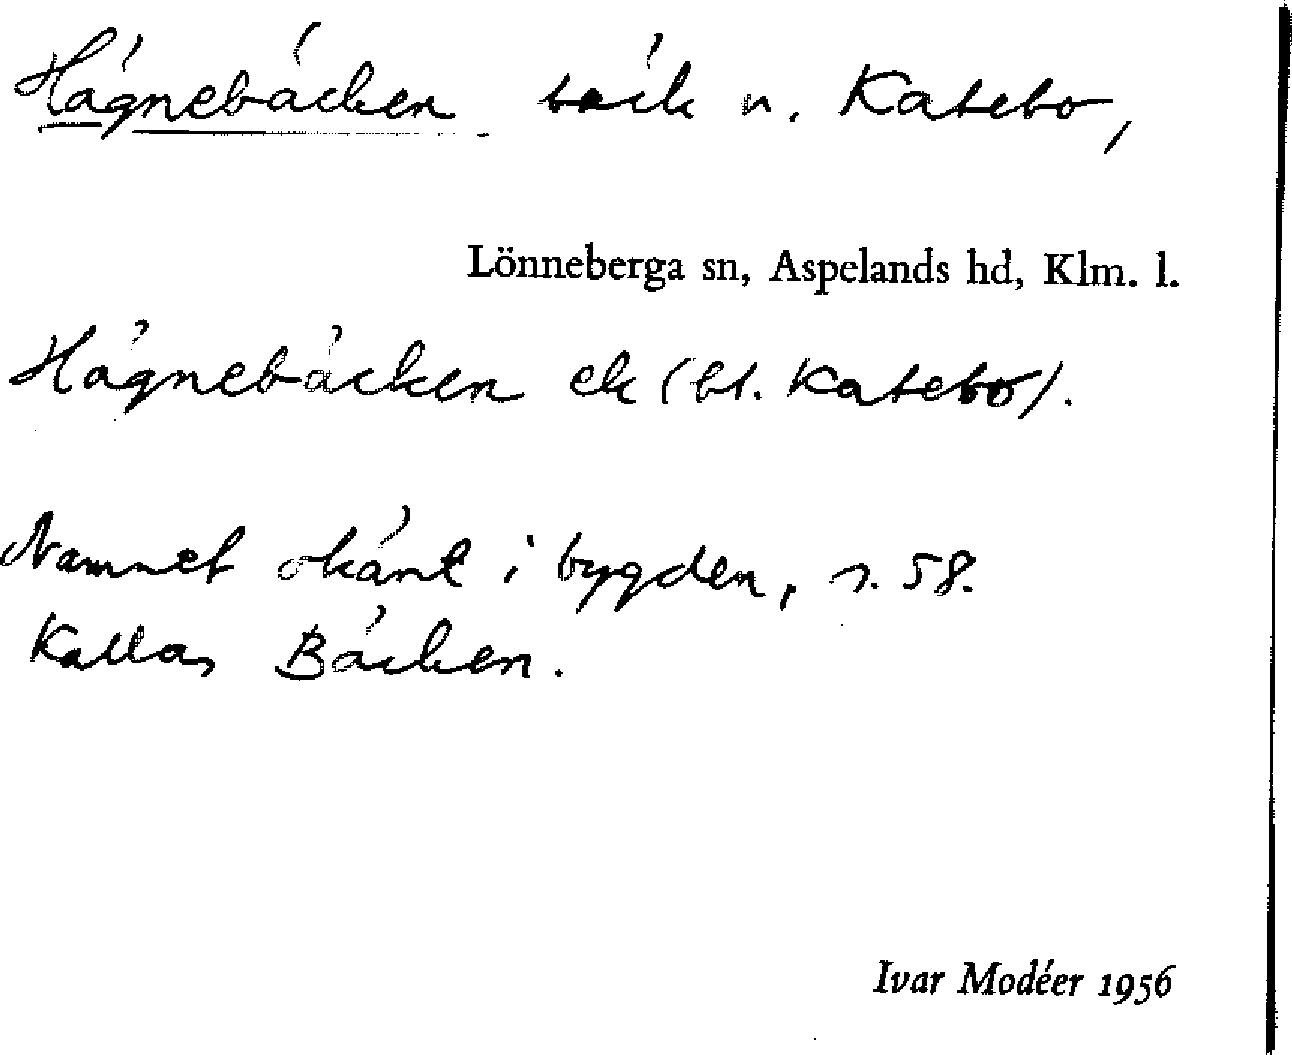 Hägnebäcken bäck n. Katebo,
Lönneberga sn, Aspelands hd, Klm. l.
Hägnebäcken ek (bl. Katebo).
Namnet okänt i bygden, s. 58.
Kallas Bäcken.
Ivar Modéer 1956